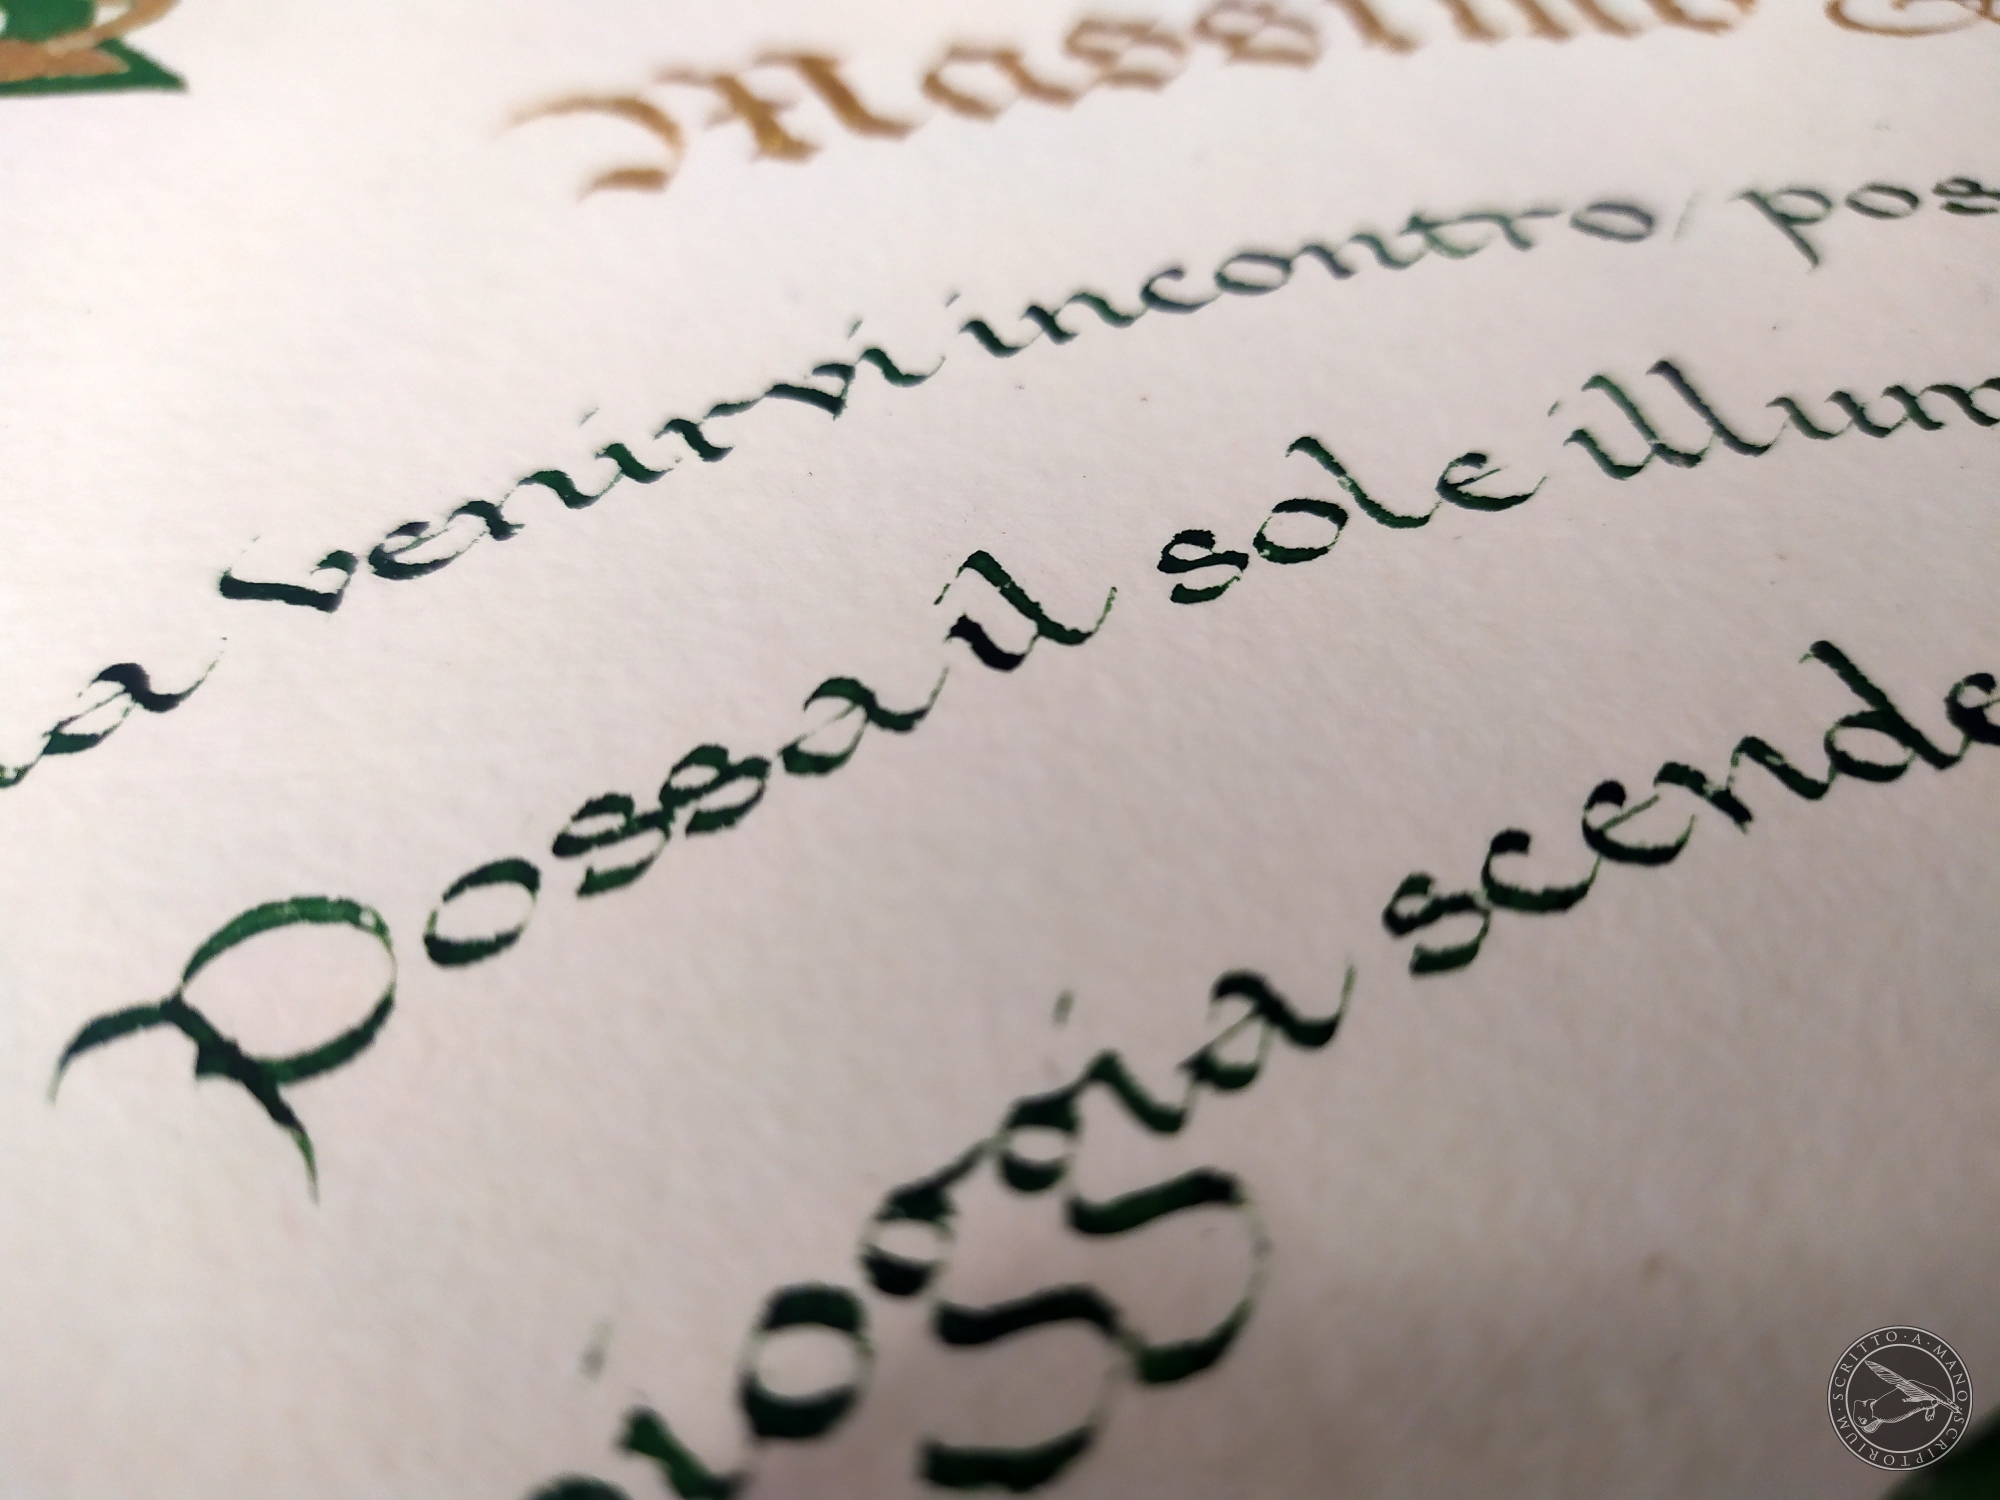 Massimo
venirvi incontro, pos
Possa il sole illum
pioggia scende
SCRITTO·A·MANO·SCRIPTORIUM·